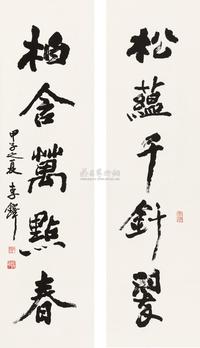 松蘊千針翠
柏含萬點春
甲子之夏 李鐸